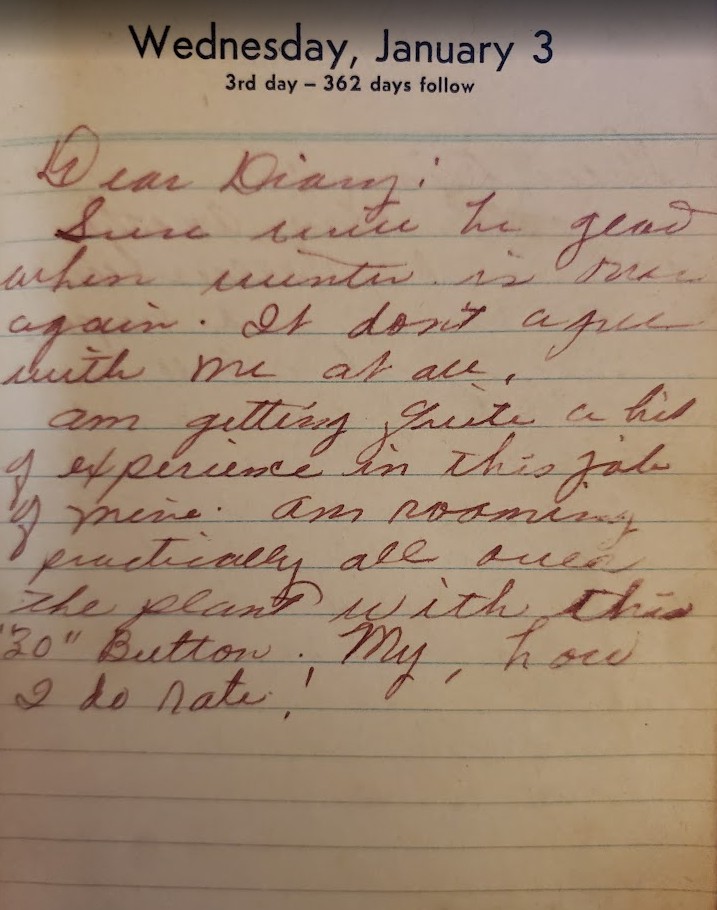 Wednesday, January 3
3rd day – 362 days follow
Dear Diary:
Sure will be glad
when winter is over
again. It don't agree
with me at all.
am getting quite a bit
of experience in this job
of mine. am roaming
practically all over
the plant with this
"30" Button. My, how
I do rate!